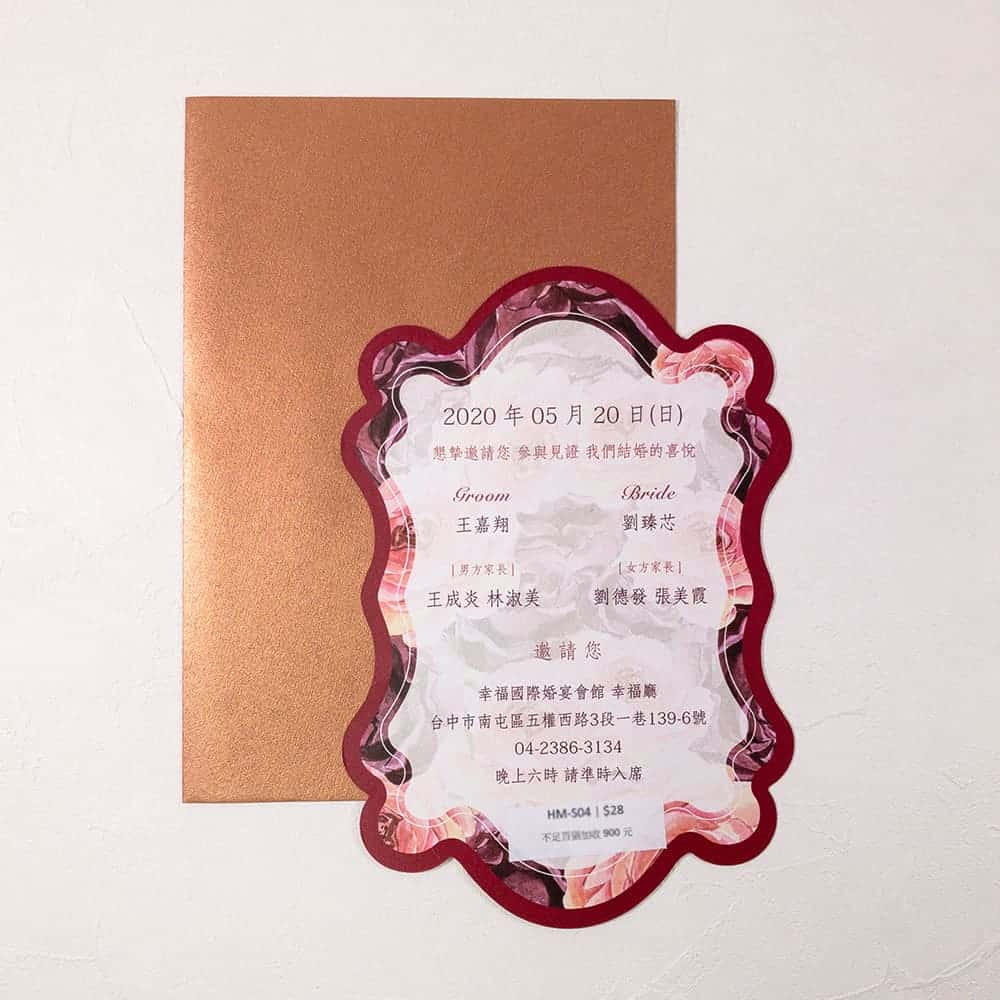 2020 年 05 月 20 日(日)
懇摯邀請您 參與見證 我們結婚的喜悅
Groom Bride
王嘉翔 劉臻芯
[男方家長] [女方家長]
王成炎 林淑美 劉德發 張美霞
邀請您
幸福國際婚宴會館 幸福廳
台中市南屯區五權西路3段一巷139-6號
04-2386-3134
晚上六時 請準時入席
HM-S04 | $28
不足百張加收 900 元